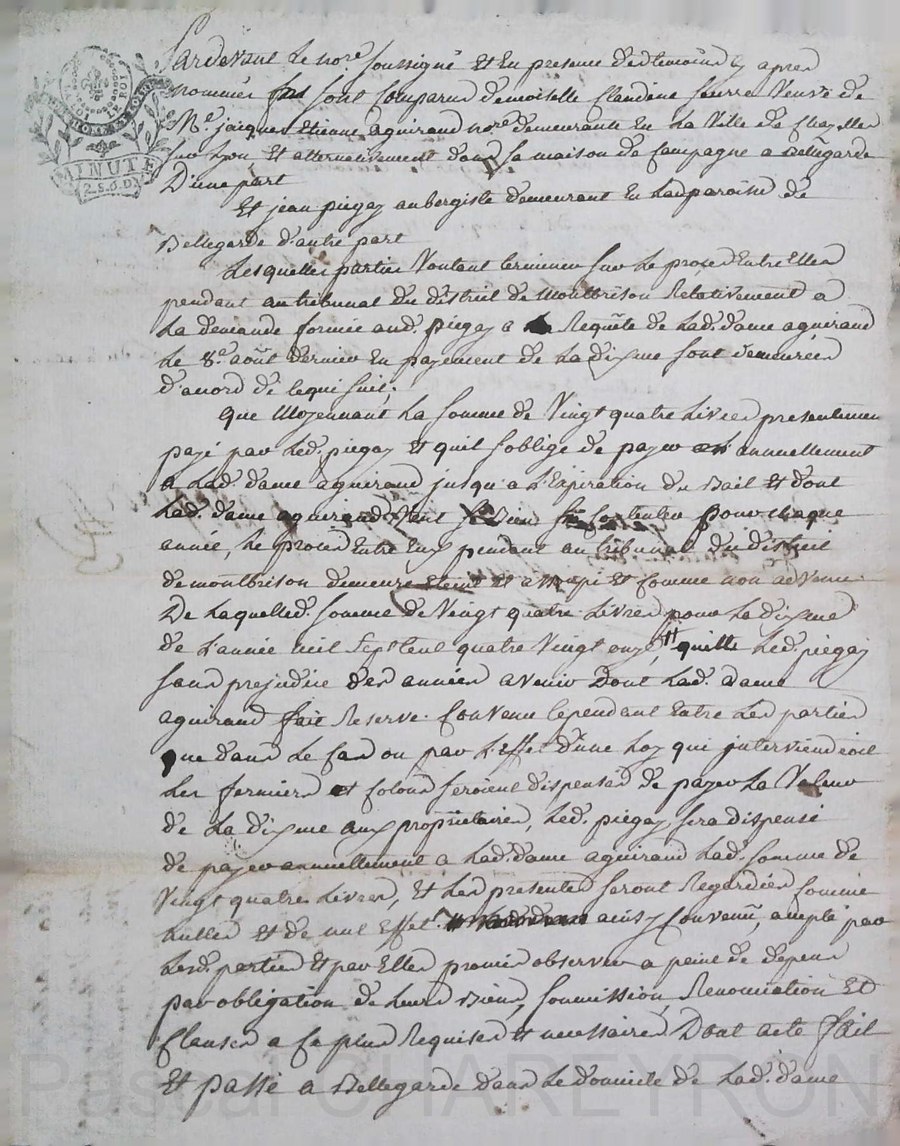 MINUTE
2.S.6.D
Pardevant Le nore. soussigné Et En presence des temoins cy apres
nommés sont Comparus demoiselle Claudine Veuve de
Me. jacques Etienne aguiraud nore. demeurante En La Ville de Chazelles
sur Lyon Et alternativement dans sa maison de Campagne a Bellegarde
D'une part
Et jean piégay aubergiste demeurant En Lad. paroisse de
Bellegarde d'autre part
Lesquelles parties Voulant terminer sur Le procès Entre Elles
pendant au tribunal du district de Montbrison Relativement a
La demande formée aud. piégay a Requête de Lad. dame aguiraud
Le 8e. août dernier En payement de La dixme sont demeurées
d'accord de ce qui suit;
que Moyennant La somme de Vingt quatre Livres presentement
payé par Led. piégay Et qu'il s'oblige de payer annuellement
a Lad. dame aguiraud jusqu'a L'Expiration du Bail Et dont
Lad. dame aguiraud Veut Bien se Contenter pour chaque
année, Le procès Entre Eux pendant au tribunal du district
de montbrison demeure Eteint Et assoupi Et Comme non advenu.
De Laquelled. somme de Vingt quatre Livres pour La dixme
de L'année mil Sept Cent quatre Vingt onze, quitte Led. piégay
sans prejudice des années a venir Dont Lad. dame
aguiraud fait Reserve. Convenu Cependant Entre Les parties
que dans Le Cas ou par L'Effet d'une Loy qui interviendroit
Les fermiers et Colons seroient dispensés de payer La Valeur
de La dixme aux propriétaires, Led. piégay sera dispensé
de payer annuellement a Lad. dame aguiraud Lad. somme de
Vingt quatre Livres, Et Les presentes seront Regardées Comme
nulles Et de nul Effet. ainsy Convenu, accepté par
Lesd. parties Et par Elles promis observer a peine de depens
par obligation de Leurs Biens, soumission, Renonciation Et
Clauses a Ce plus Requises et necessaires Dont acte fait
Et passé a Bellegarde dans Le domicile de Lad. dame
Pascal CHAREYRON